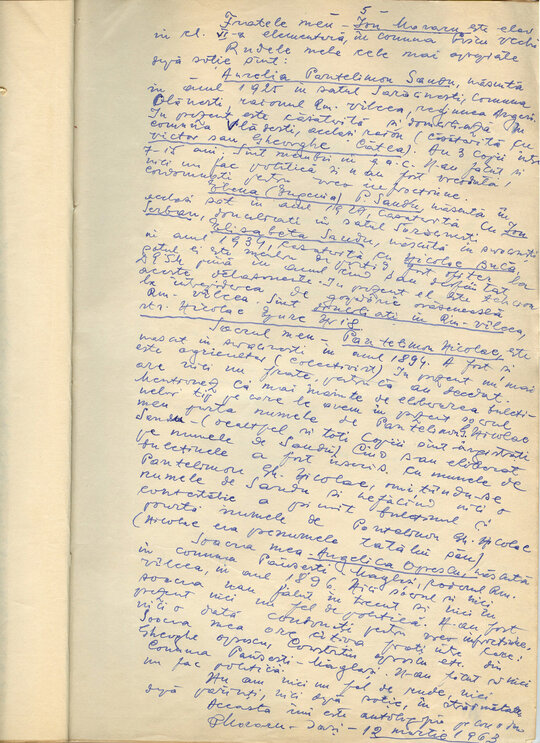 5
Fratele meu – Ion Moraru este elev
în cl. VI-a elementară, în comuna vechi
Rudele mele cele mai apropiate
după soție sînt:
Aurelia Pantelimon Sandu, născută
în anul 1925 în satul Sărăcinești, comuna
Olănești raionul Rm. vîlcea, regiunea Argeș.
În prezent este căsătorită și domiciliază în
comuna Vlădești, același raion (căsătorită cu
Victor sau Gheorghe). Au 3 copii între
7-15 ani. Sînt membri în g.a.c. N-au făcut și
nici nu fac politică și n-au fost vreodată
condamnați pentru vreo
Elena (Eugenia) P. Sandu, născută în
același sat în anul 1929, căsătorită cu Ion
Șerban, domiciliați în satul Sărăcinești
Elisabeta Sandu, născută în Sărăcinești
în anul 1934, căsătorită cu Nicolae
soțul ei este membru de partid, a fost ofițer la
până în anul cînd s-au
aceste În prezent el este
la întreprinderea de gospodărie orășenească
Rm. vîlcea. Sînt domiciliați în Rm-vîlcea,
str. Nicolae
Socrul meu – Pantelimon Nicolae, este
născut în Sărăcinești în anul 1894. A fost și
este agricultor (colectivist). În prezent nu mai
are nici un frate, pentru că au decedat.
Menționez că mai înainte de elaborarea buleti-
nelor tip pe care le avem în prezent socrul
meu purta numele de Pantelimon Gh. Nicolae
Sandu – (de altfel și toți copiii sînt înregistrați
pe numele de Sandu). Cînd s-au elaborat
buletinele a fost înscris cu numele de
Pantelimon Gh. Nicolae, omițîndu-se
numele de Sandu și nefăcînd nici o
contestație a primit buletinul și
poartă numele de Pantelimon Gh. Nicolae
(Nicolae era prenumele tatălui său)
Soacra mea – Angelica Oprescu, născută
în comuna Păușești Măglași, raionul Rm.
vîlcea, în anul 1896. Nici socrul și nici
soacra n-au făcut în trecut și nici în
prezent nici un fel de politică. N-au fost
nici o dată condamnați pentru vreo infracțiune.
Soacra mea are cîțiva frați între care:
Gheorghe Oprescu, Constantin Oprescu etc. din
comuna Păușești-Măglași. N-au făcut și nici
nu fac politică.
Nu am nici un fel de rude, nici
după părinți, nici după soție, în străinătate
Aceasta îmi este autobiografia pe care o dau
PMoraru – Iași – 12 martie 1963